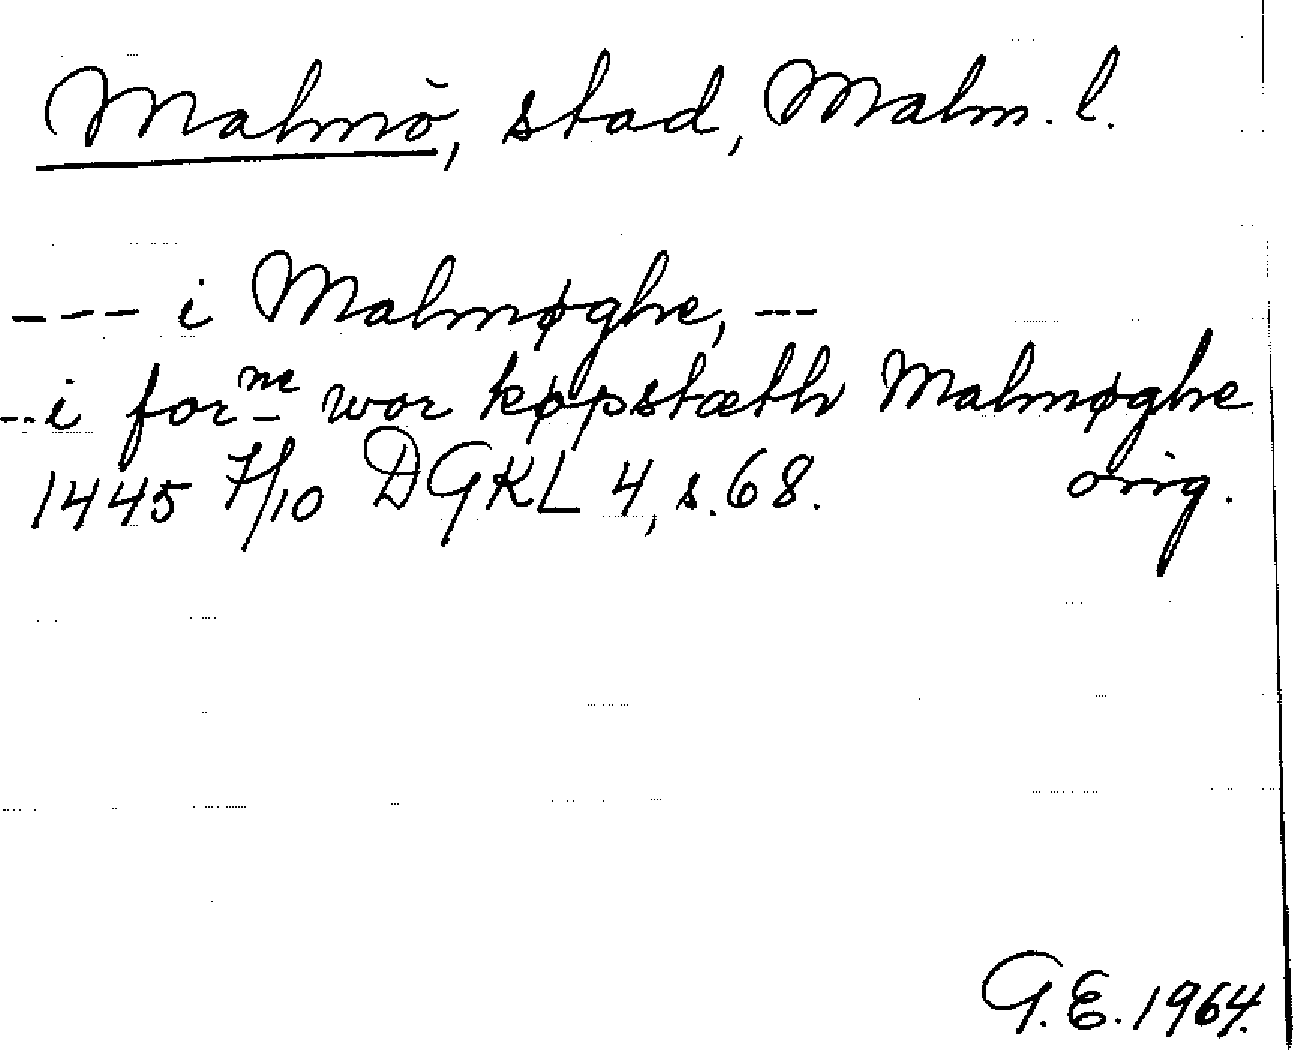 Malmö, stad, Malm. l.
--- i Malmøghe, --
--i forⁿᵉ wor køpstæth Malmøghe
1445 7/10 DGKL 4, s. 68. orig.
G.E. 1964.